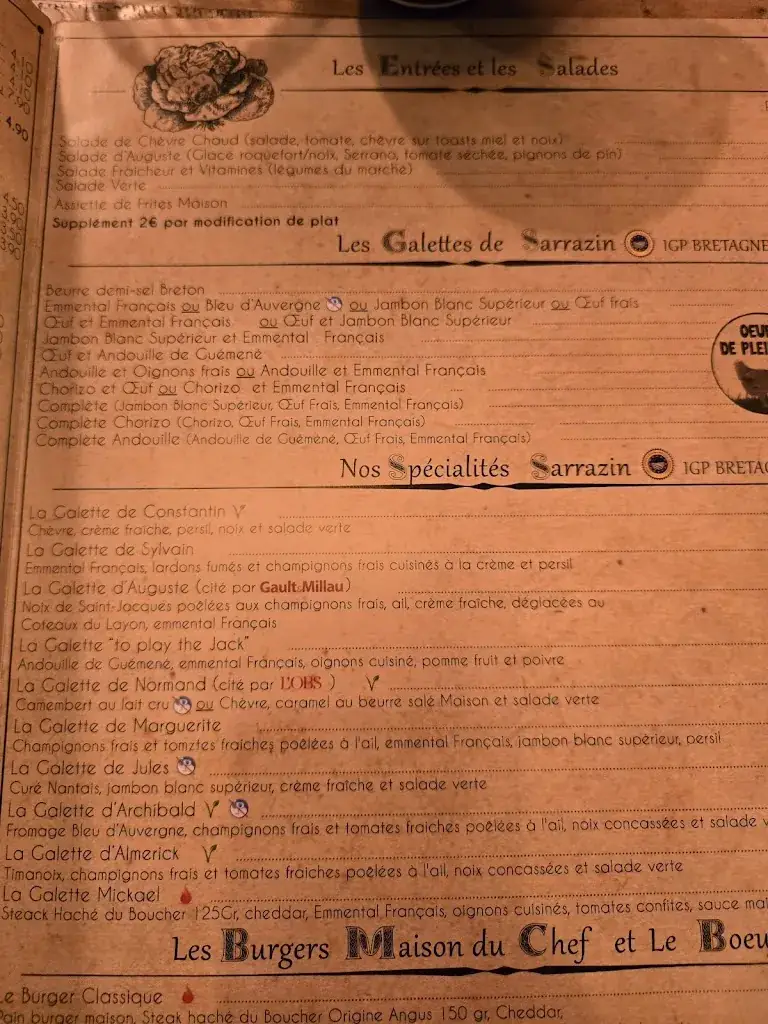 4.90
Les Entrées et les Salades
Salade de Chèvre Chaud (salade, tomate, chèvre sur toasts miel et noix)
Salade d'Auguste (Glace roquefort/noix, Serrano, tomate séchée, pignons de pin)
Salade Fraîcheur et Vitamines (légumes du marché)
Salade Verte
Assiette de Frites Maison
Supplément 2€ par modification de plat
Les Galettes de Sarrazin IGP BRETAGNE
Beurre demi-sel Breton
Emmental Français ou Bleu d'Auvergne ou Jambon Blanc Supérieur ou Œuf frais
Œuf et Emmental Français ou Œuf et Jambon Blanc Supérieur
Jambon Blanc Supérieur et Emmental Français
Œuf et Andouille de Guémené
Andouille et Oignons frais ou Andouille et Emmental Français
Chorizo et Œuf ou Chorizo et Emmental Français
Complète (Jambon Blanc Supérieur, Œuf Frais, Emmental Français)
Complète Chorizo (Chorizo, Œuf Frais, Emmental Français)
Complète Andouille (Andouille de Guémené, Œuf Frais, Emmental Français)
OEUF
DE PLEI
Nos Spécialités Sarrazin IGP BRETAG
La Galette de Constantin
Chèvre, crème fraîche, persil, noix et salade verte
La Galette de Sylvain
Emmental Français, lardons fumés et champignons frais cuisinés à la crème et persil
La Galette d'Auguste (cité par Gault&Millau)
Noix de Saint-Jacques poêlées aux champignons frais, ail, crème fraîche, déglacées au
Coteaux du Layon, emmental Français
La Galette "to play the Jack"
Andouille de Guémené, emmental Français, oignons cuisiné, pomme fruit et poivre
La Galette de Normand (cité par L'OBS )
Camembert au lait cru ou Chèvre, caramel au beurre salé Maison et salade verte
La Galette de Marguerite
Champignons frais et tomztes fraîches poêlées à l'ail, emmental Français, jambon blanc supérieur, persil
La Galette de Jules
Curé Nantais, jambon blanc supérieur, crème fraîche et salade verte
La Galette d'Archibald
Fromage Bleu d'Auvergne, champignons frais et tomates fraîches poêlées à l'ail, noix concassées et salade v
La Galette d'Almerick
Timanoix, champignons frais et tomates fraîches poêlées à l'ail, noix concassées et salade verte
La Galette Mickael
Steack Haché du Boucher 125Gr, cheddar, Emmental Français, oignons cuisinés, tomates confites, sauce mai
Les Burgers Maison du Chef et Le Boeu
Le Burger Classique
Pain burger maison, Steak haché du Boucher Origine Angus 150 gr, Cheddar,